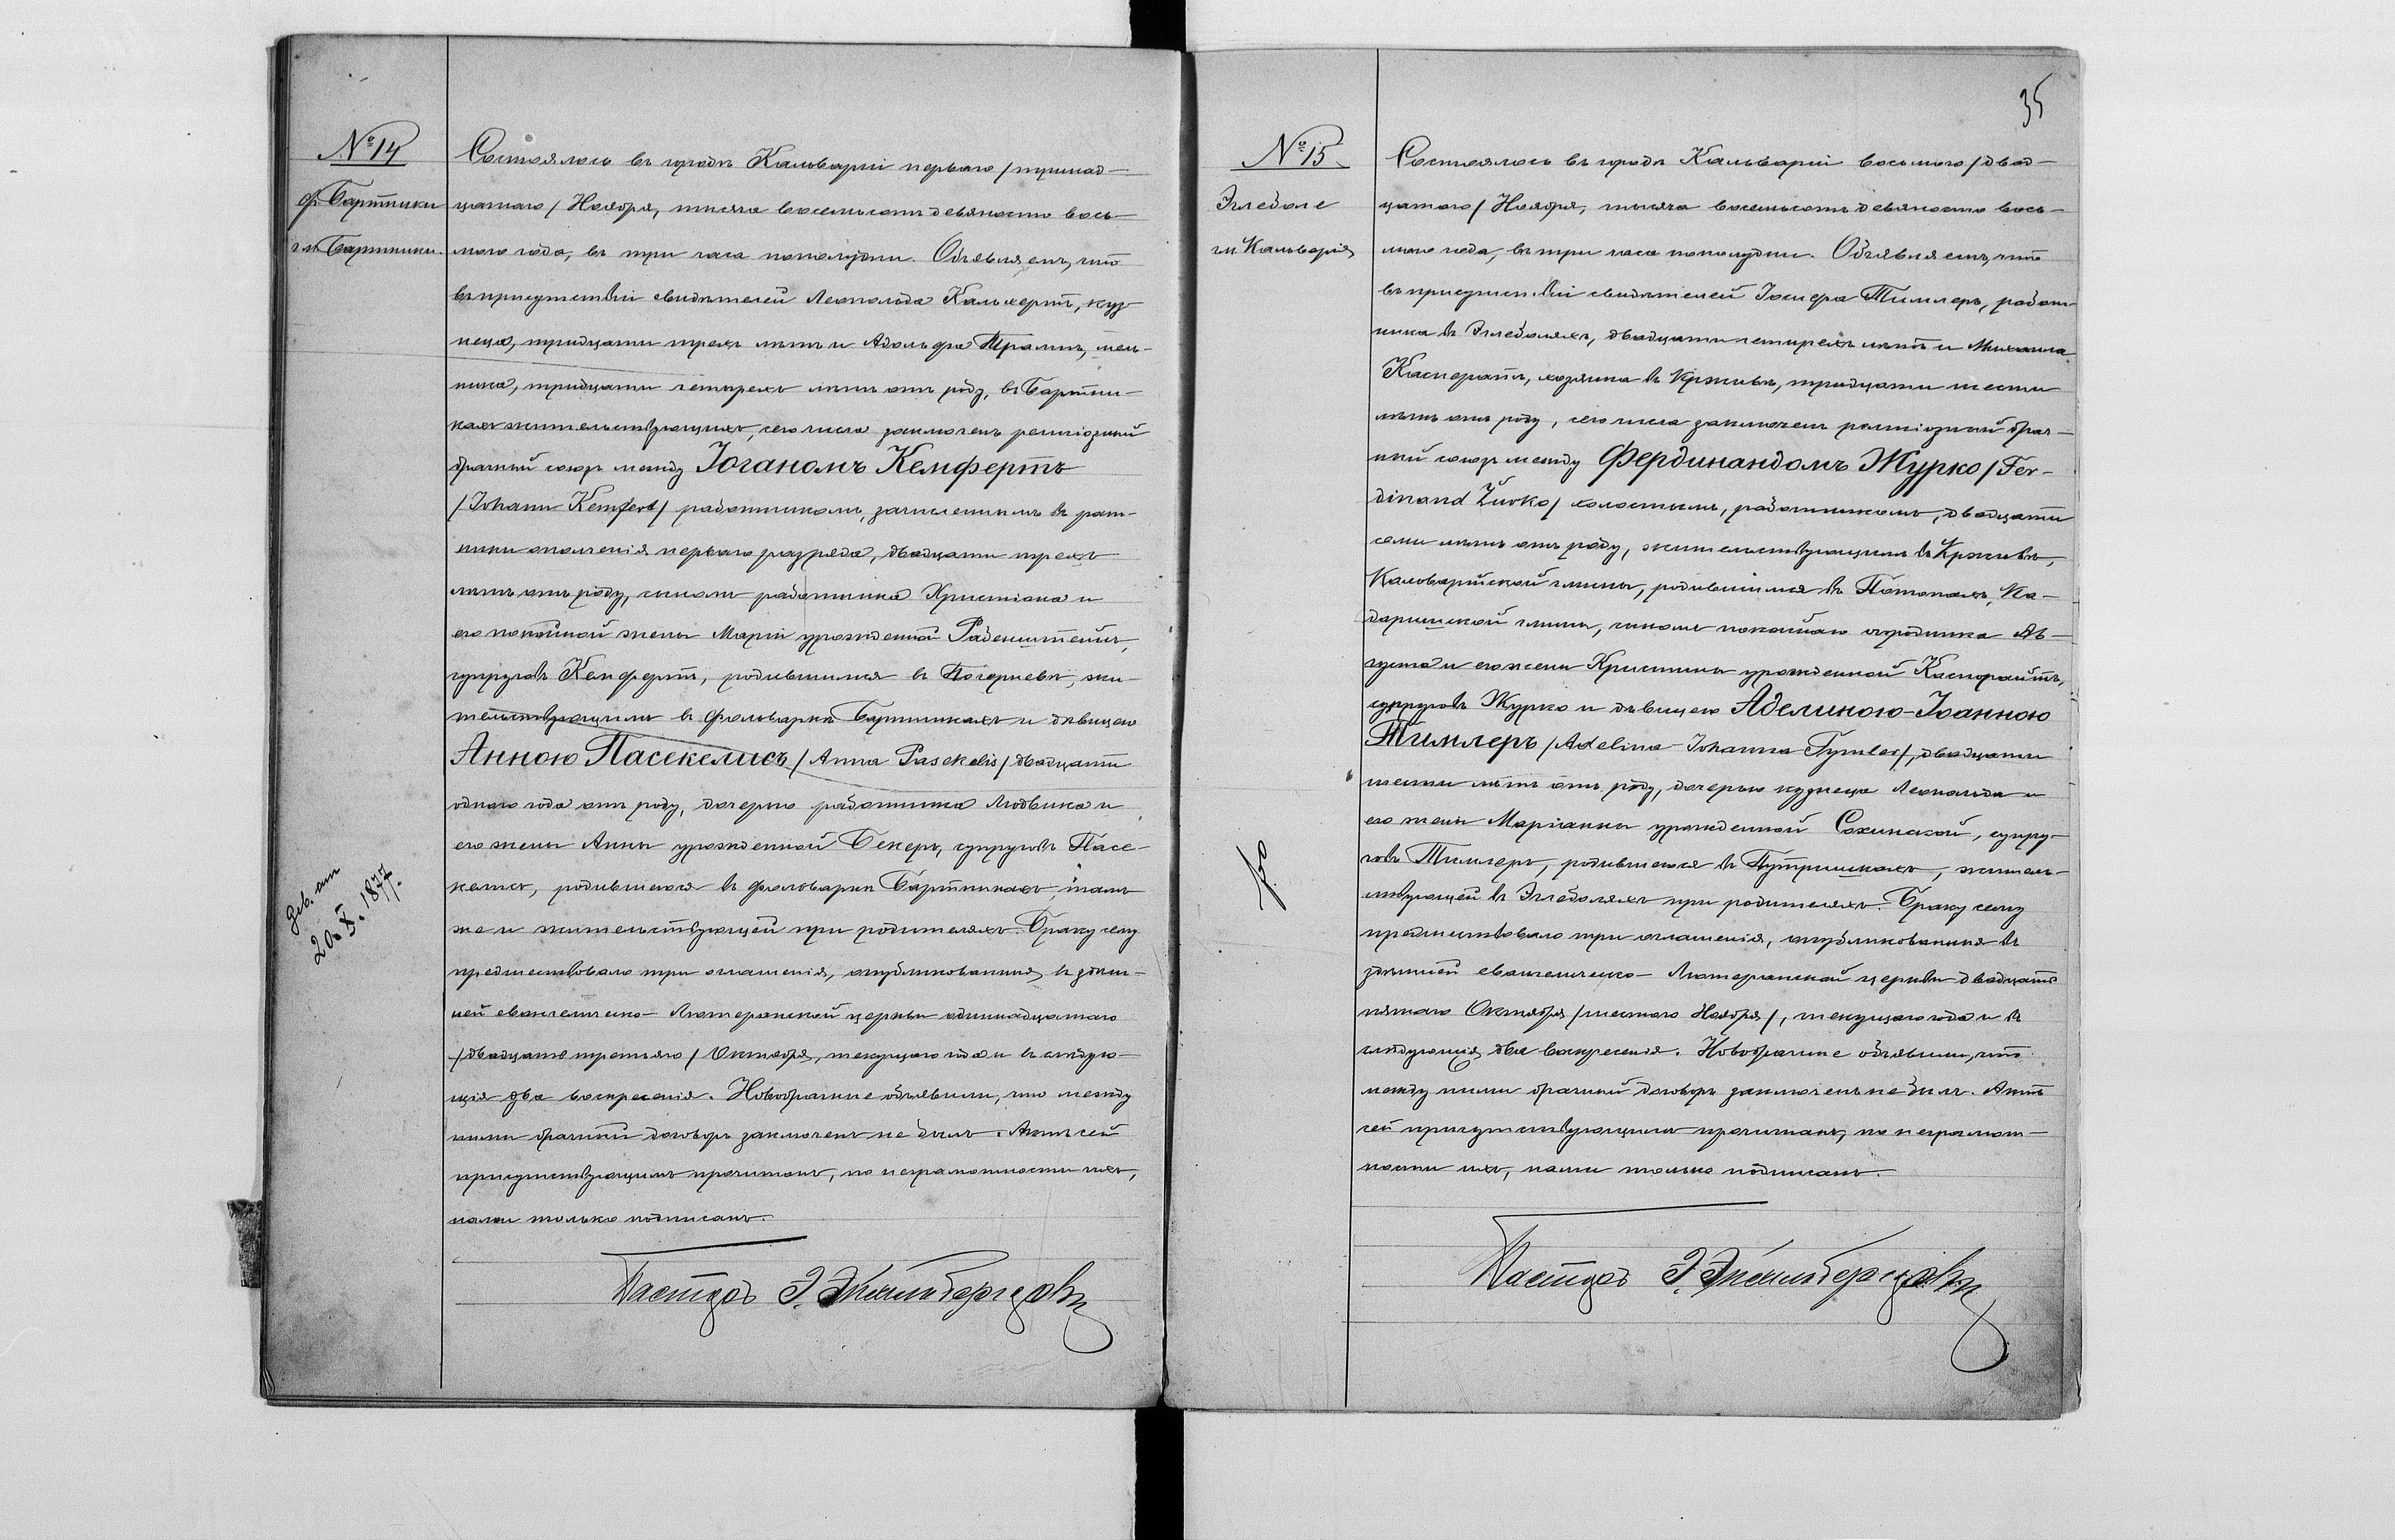 № 14
ф. Бартники
гм. Бартники.
Состоялось въ городѣ Кальваріи перваго /тринад-
цатаго/ Ноября, тысяча восемьсотъ девяносто вось-
мого года, въ три часа пополудни. Объявляемъ, что
въ присутствіи свидѣтелей Леопольда Кальхертъ, куз-
неца, тридцати трехъ лѣтъ и Адольфа мель-
ника, тридцати четырехъ лѣтъ отъ роду, въ Бартни-
кахъ жительствующихъ, сего числа заключенъ религіозный
брачный союзъ между Іоганомъ Кемфертъ
/Johann Kemfert/ работникомъ, зачисленнымъ въ рат-
ники ополченія перваго разряда, двадцати трехъ
лѣтъ отъ роду, сыномъ работника Христіана и
его покойной жены Маріи урожденной Раденштейнъ,
супруговъ Кемфертъ, родившимся въ жи-
тельствующимъ въ фольваркѣ Бартникахъ и дѣвицею
Анною Пасекелисъ /Anna Pasekelis/ двадцати
одного года отъ роду, дочерью работника Людвика и
его жены Анны урожденной Бекеръ, супруговъ Пасе-
келисъ, родившеюся въ фольваркѣ Бартникахъ, тамъ
же и жительствующей при родителяхъ. Браку сему
предшествовало три оглашенія, опубликованныя въ здѣш-
ней евангелическо-Лютеранской церкви одиннадцатаго
/двадцать третьяго/ Октября, текущаго года и въ слѣдую-
щія два воскресенія. Новобрачные объявили, что между
ними брачный договоръ заключенъ не былъ. Актъ сей
присутствующимъ прочитанъ, по неграмотности ихъ,
нами только подписанъ.
Пасторъ Э.
geb. am
20. X. 1877.
35
№ 15
Эглеболе
гм. Кальварія
Состоялось въ городѣ Кальваріи восьмого /двад-
цатаго/ Ноября, тысяча восемьсотъ девяносто вось-
мого года, въ три часа пополудни. Объявляемъ, что
въ присутствіи свидѣтелей Тимлеръ, работ-
ника въ Эглеболяхъ, двадцати четырехъ лѣтъ и Михаила
Касператъ, хозяина въ Кржывѣ, тридцати шести
лѣтъ отъ роду, сего числа заключенъ религіозный брач-
ный союзъ между Фердинандомъ Журко /Fer-
dinand Żurko/ холостымъ, работникомъ, двадцати
семи лѣтъ отъ роду, жительствующимъ въ Кржывѣ,
Кальварійской гмины, родившимся въ Ка-
даришской гмины, сыномъ покойнаго огородника Ав-
густа и его жены Христины урожденной Каспорайтъ,
супруговъ Журко и дѣвицею Аделиною-Іоанною
Тимлеръ /Adelina-Johanna Tymler/, двадцати
шести лѣтъ отъ роду, дочерью кузнеца Леопольда и
его жены Маріанны урожденной Сохинской, супру-
говъ Тимлеръ, родившеюся въ Путришкахъ, житель-
ствующей въ Эглеболяхъ при родителяхъ. Браку сему
предшествовало три оглашенія, опубликованныя въ
здѣшней евангелическо-Лютеранской церкви двадцать
пятаго Октября /шестого Ноября/, текущаго года и въ
слѣдующія два воскресенія. Новобрачные объявили, что
между ними брачный договоръ заключенъ не былъ. Актъ
сей присутствующимъ прочитанъ, по неграмот-
ности ихъ, нами только подписанъ.
Пасторъ Э.